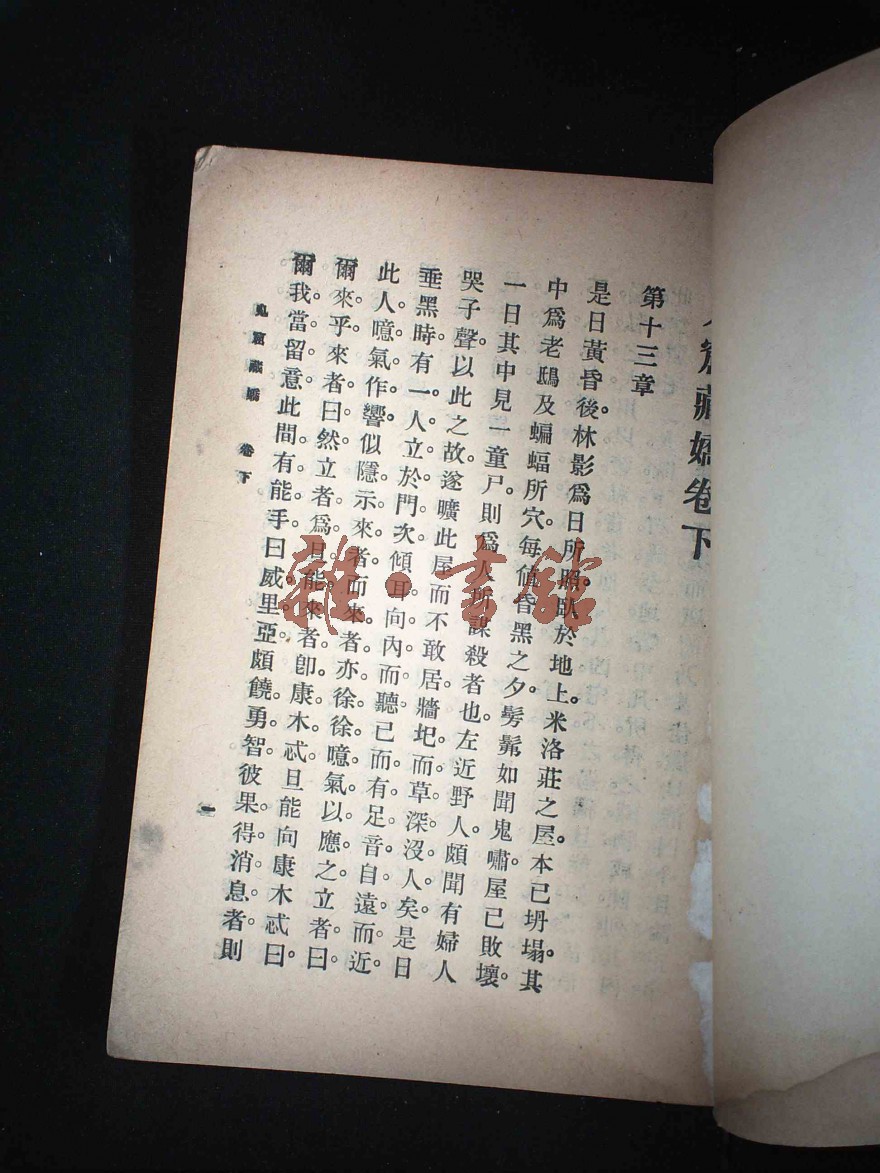 窟藏嬌卷下
第十三章
是日黃昏後。林影爲日所照。臥於地上。米洛莊之屋。本已坍塌。其
中爲老鴟及蝙蝠所穴。每值昏黑之夕。髣髴如聞鬼嘯。屋已敗壞。
一日其中見一童尸。則爲人所謀殺者也。左近野人。頗聞有婦人
哭子聲。以此之故。遂曠此屋而不敢居。牆圮而草深沒人矣。是日
垂黑時。有一人立於門次。傾耳向內而聽。已而有足音自遠而近。
此人噫氣作響。似隱示來者。而來者亦徐徐噫氣以應之。立者曰。
爾來乎。來者曰然。立者爲旦能。來者卽康木忒。旦能向康木忒曰。
爾我當留意。此間有能手曰威里亞。頗饒勇智。彼果得消息者。則
鬼窟藏嬌 卷下 一
雜·書館